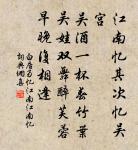 江南忆其次忆吴
宫
吴酒一杯春竹叶
吴娃双舞醉芙蓉
早晚复相逢
白居易忆江南江南忆
词典网集